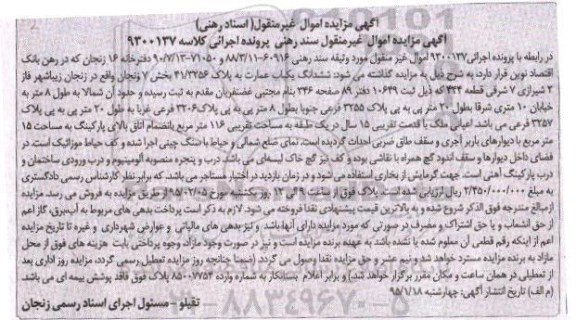 آگهی مزایده اموال غیرمنقول( اسناد رهنی)
آگهی مزایده اموال غیرمنقول سند رهنی پرونده اجرائی کلاسه ۹۳۰۰۱۳۷
در رابطه با پرونده اجرائی۹۳۰۰۱۳۷ اموال غیر منقول مورد وثیقه سند رهنی ۶۰۹۱۶-۸۸/۳/۱۱ و ۷۱۰۵۰-۹۰/۷/۱۳ دفترخانه ۱۶ زنجان که در رهن بانک
اقتصاد نوین قرار دارد، به شرح ذیل به مزایده گذاشته می شود: ششدانگ یکباب عمارت به پلاک ۴۱/۳۲۵۶ بخش ۷ زنجان واقع در زنجان زیباشهر فاز
۲ شیرازی ۷ شرقی قطعه ۴۲۴ که ذیل ثبت ۱۰۶۴۹ دفتر ۸۹ صفحه ۲۴۶ بنام مجتبی غضنفریان مقدم به ثبت رسیده و حدود آن شمالا: به طول ۸ متر به
خیابان ۱۰ متری شرقا بطول ۲۰ متر پی به پی پلاک ۳۲۵۵ فرعی جنوبا بطول ۸ متر پی به پی پلاک۳۲۰۶ فرعی غربا به طول ۲۰ متر پی به پی پلاک
۳۲۵۷ فرعی می باشد. اعیانی ملک با قدمت تقریبی ۱۵ سال در یک طبقه به مساحت تقریبی ۱۱۶ متر مربع بانضمام اتاق بالای پارکینگ به مساحت ۱۵
متر مربع با دیوارهای باربر آجری و سقف طاق ضربی احداث گردیده است. نمای ضلع شمالی و حیاط با سنگ چینی اجرا شده و کف حیاط موزائیک است. در
فضای داخل دیوارها و سقف اندود گچ همراه با نقاشی بوده و کف نیز گچ خاک لیسه‌ای می باشد. درب و پنجره منصوبه آلومینیوم و درب ورودی ساختمان و
درب پارکینگ آهنی است. جهت گرمایش از بخاری استفاده می شود و در زمان بازدید در اختیار مستاجر می باشد. که برابر نظر کارشناس رسمی دادگستری
به مبلغ ۲/۴۵۰/۰۰۰/۰۰۰ ریال ارزیابی شده است. پلاک فوق از ساعت ۹ الی ۱۲ روز یکشنبه مورخ ۹۵/۰۲/۰۵ از طریق مزایده به فروش می رسد. مزایده
از مبالغ مندرجه فوق الذکر شروع شده و به بالاترین قیمت پیشنهادی نقدا فروخته می شود. لازم به ذکر است پرداخت بدهی های مربوط به آب،برق، گاز اعم
از حق انشعاب و یا حق اشتراک و مصرف در صورتی که مورد مزایده دارای آنها باشد و نیز بدهی های مالیاتی و عوارض شهرداری و غیره تا تاریخ مزایده
اعم از اینکه رقم قطعی آن معلوم شده یا نشده باشد به عهده برنده مزایده است و نیز در صورت وجود مازاد وجوه پرداختی بابت هزینه های فوق از محل
مازاد به برنده مزایده مسترد خواهد شد و نیم عشر و حق مزایده نقدا وصول می گردد. (ضمنا چنانچه روز مزایده تعطیل رسمی گردد، مزایده روز اداری بعد
از تعطیلی در همان ساعت و مکان مقرر برگزار خواهد شد.) و برابر اعلام بستانکار به شماره وارده ۸۵۰۰۷۷۵۴ پلاک فوق فاقد پوشش بیمه ای می باشد.
(م الف) تاریخ انتشار آگهی: چهارشنبه ۹۵/۱/۱۸
تقیلو – مسئول اجرای اسناد رسمی زنجان
۰۲۱-۸۸۳۴۹۶۷۰-۵